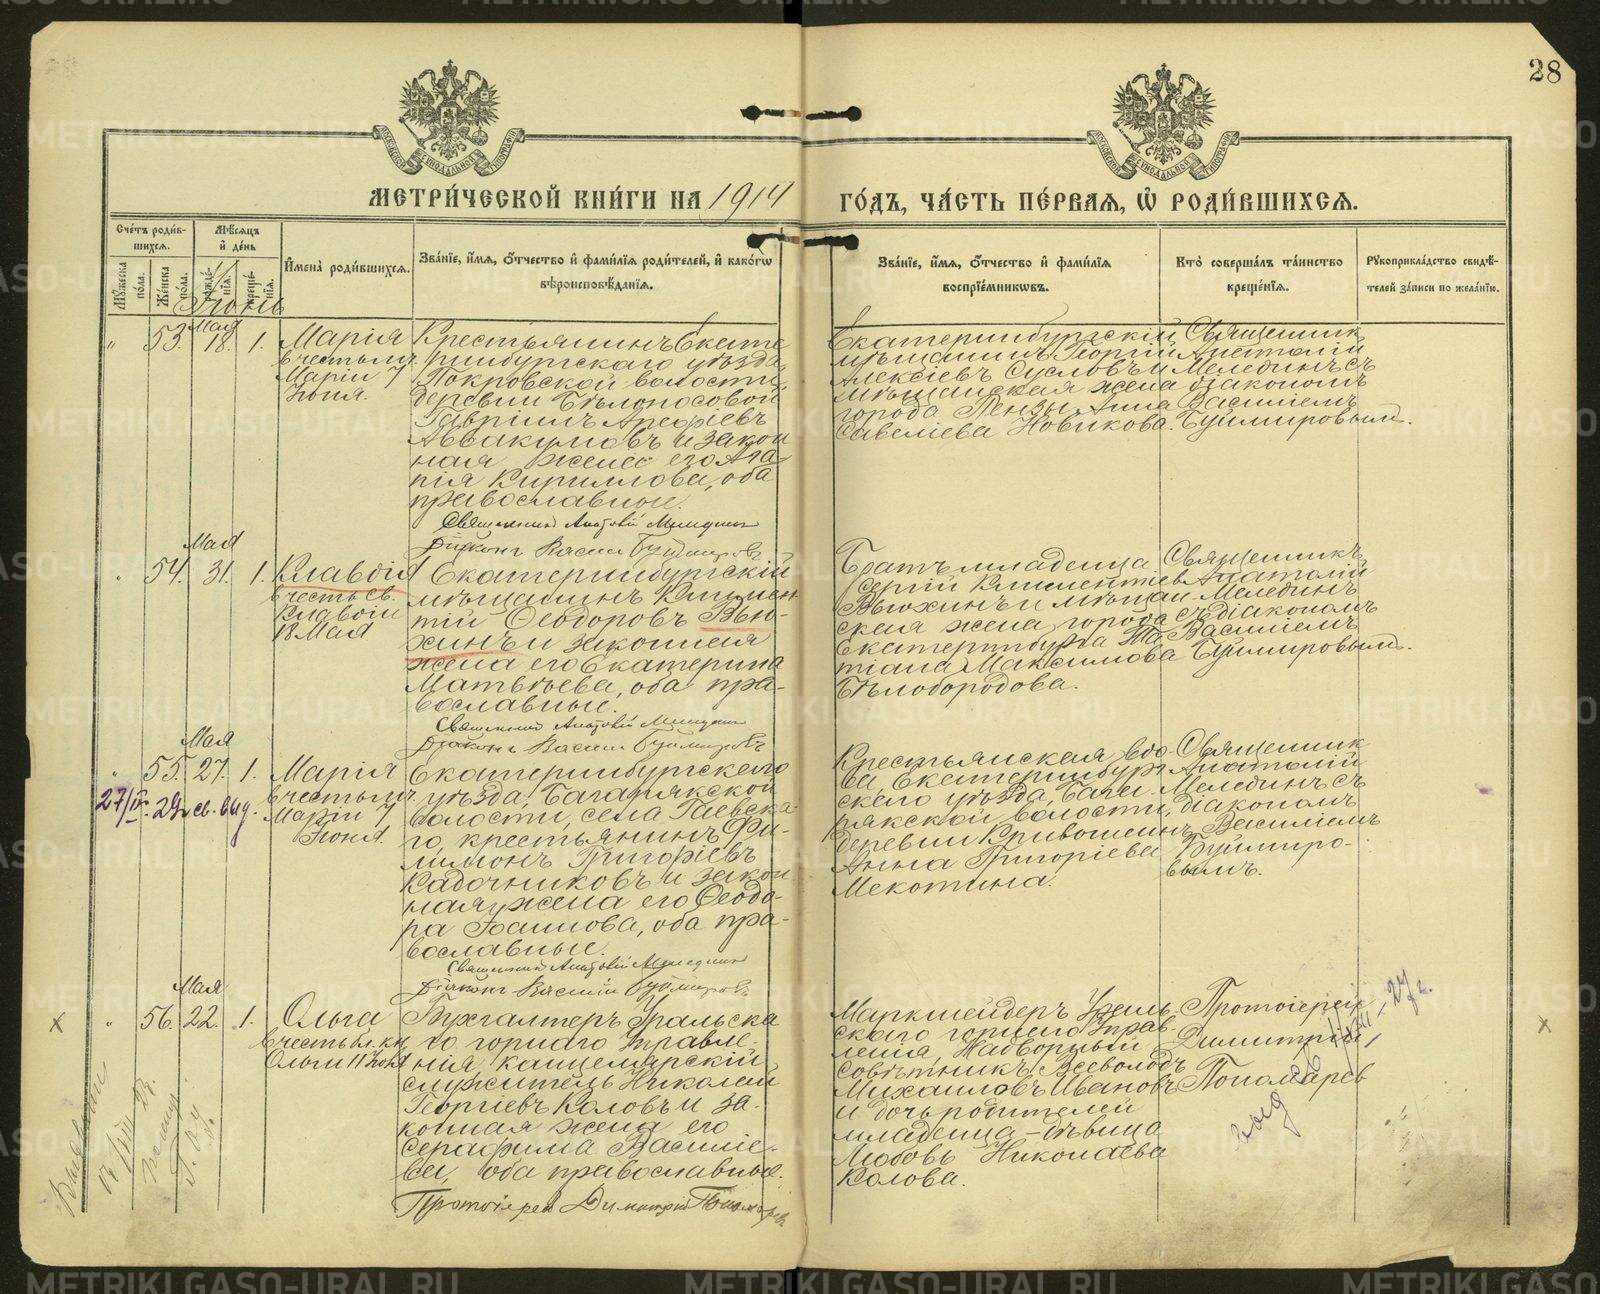 28
МЕТРИ́ЧЕСКОЙ КНИ́ГИ НА 1914 ГО́ДЪ, ЧА́СТЬ ПЕ́РВАЯ, Ѡ РОДИ́ВШИХСЯ.
Сче́тъ роди́в-
шихся.
Му́жеска по́ла.
Же́нска по́ла.
Мѣ́сяцъ
и де́нь
рожде́нія.
креще́нія.
Имена̀ роди́вшихся.
Зва́ніе, и́мя, о́тчество и фами́лія роди́телей, и како́гѡ
вѣроисповѣ́данія.
Зва́ніе, и́мя, о́тчество и фами́лія
воспріе́мниковъ.
Кто̀ соверша́лъ та́инство
креще́нія.
Рукоприкла́дство свидѣ́-
телей за́писи по жела́нію.
Іюнь
Мая
53. 18. 1.
Марія
въ честь мц.
Маріи 7
Іюня.
Крестьянинъ Екате
ринбургскаго уѣзда,
Покровской волости,
деревни Бѣлоносовой
Гавріилъ Арефіевъ
Аввакумовъ и закон
ная жена его Ага-
пія Кириллова, оба
православные.
Священникъ Анатолій Мелединъ
Діаконъ Василій Буймировъ
Екатеринбургскій
мѣщанинъ Георгій
Алексіевъ Сусловъ и
мѣщанская жена
города Пензы Анна
Савеліева Новикова.
Священник
Анатолій
Мелединъ съ
діакономъ
Василіемъ
Буймировымъ.
Мая
54. 31. 1.
Клавдія
въ честь св.
Клавдіи
18 Мая
Екатеринбургскій
мѣщанинъ Климен
тій Ѳеодоровъ Вью-
хинъ и законная
жена его Екатерина
Матвѣева, оба пра-
вославные.
Священникъ Анатолій Мелединъ
Діаконъ Василій Буймировъ
Братъ младенца
Сергій Климентіев
Вьюхинъ и мѣщан-
ская жена города
Екатеринбурга Та-
тіана Максимова
Бѣлобородова.
Священникъ
Анатолій
Мелединъ
съ діакономъ
Василіемъ
Буймировымъ.
Мая
55. 27. 1.
27/IX. 29 св. выд.
Марія
въ честь мц.
Маріи 7
Іюня.
Екатеринбургскаго
уѣзда, Багарякской
волости, села Гаевска-
го, крестьянинъ Фи-
лимонъ Григоріевъ
Кадочниковъ и закон
ная жена его Ѳеодо-
ра Іоаннова, оба пра-
вославные.
Священникъ Анатолій Мелединъ
Діаконъ Василій Буймировъ
Крестьянская вдо-
ва, Екатеринбург
скаго уѣзда, Бага-
рякской волости,
деревни Кривошеинъ
Анна Григоріева
Мекотина.
Священник
Анатолій
Мелединъ съ
діакономъ
Василіемъ
Буймиро-
вымъ.
Мая
56. 22. 1.
Ольга
въ честь бл. кн.
Ольги 11 Іюля
Бухгалтеръ Уральска
го горнаго Правле-
нія, канцелярскій
служитель Николай
Георгіевъ Коловъ и за-
конная жена его
Серафима Василіе-
ва, оба православные.
Протоіерей Димитрій Пономарев
Маркшейдеръ Ураль-
скаго горнаго Прав-
ленія, Надворный
Совѣтникъ Всеволодъ
Михаиловъ Ивановъ
и дочь родителей
младенца - дѣвица
Любовь Николаева
Колова.
Протоіерей
Димитрій
Пономарев